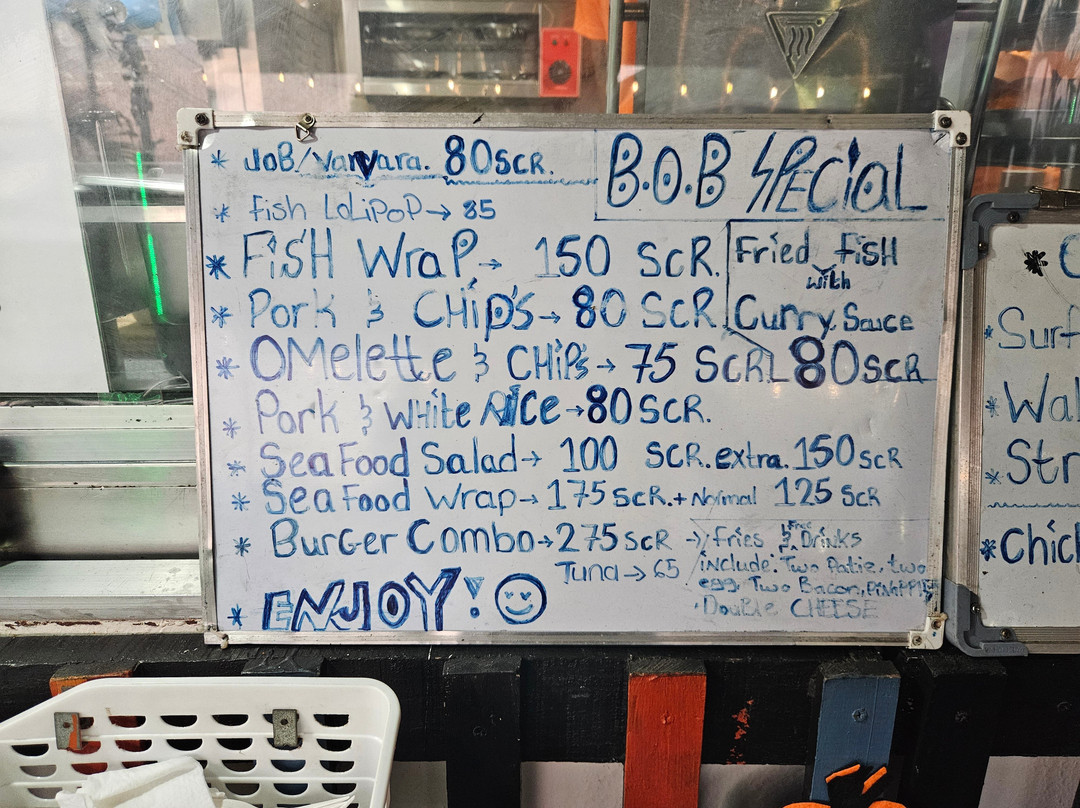 * JOB/Varvara. 80 SCR.
B.O.B SPECiaL
* fish LoLiPoP→ 85
* FiSH WraP→ 150 SCR.
Fried fiSH
with
Curry Sauce
80 SCR
* Pork & CHip's→ 80 SCR
* OMelette & CHiPs→ 75 SCR
* Pork & WHite RiCe→80 SCR.
* Sea Food Salad→ 100 SCR. extra. 150 SCR
* Sea Food Wrap→ 175 SCR. + Normal 125 SCR
* BurGer Combo→275 SCR → Fries & Free Drinks
Tuna→ 65
include: Two Patie, two
egg, Two Bacon,
DouBle CHEESE
* ENJOY!
*
* Surf
* Wal
* Str
* Chic